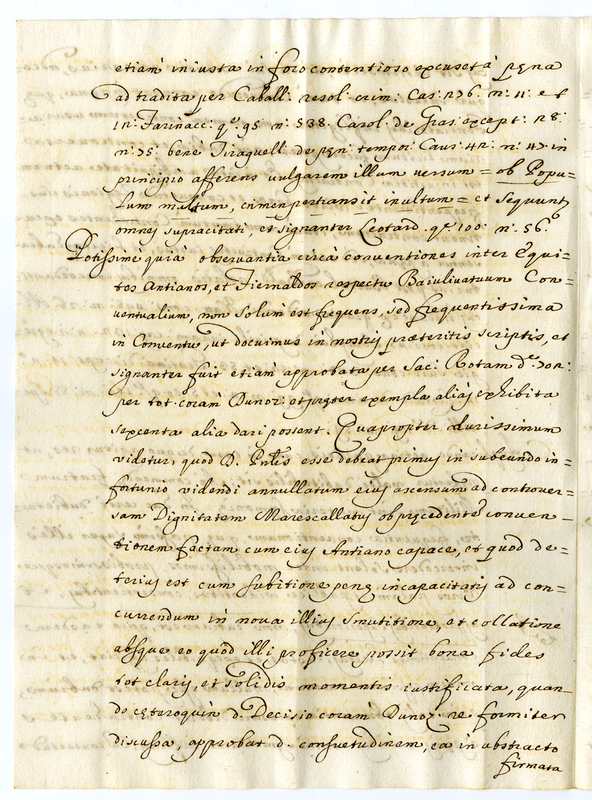 etiam iniusta in foro contentioso excuset à pęna
ad tradita per Caball: resol: crim: Cas: 276. n: 11: et
12: Farinacc: q.e 95 n: 538. Carol: de Gras: except: 28:
n: 75: bene Tiraquell: de pęn: tempor: Caus: 42: n: 47 in
principio afferens vulgarem illum versum = ob Popu=
lum multum, crimen pertransit inultum = et sequunt
omnes supracitati, et signanter Leotard: q.e 100: n: 56.
Potissimè quià observantia circà conventiones inter Equi=
tes Antianos, et Fiernaldos respectu Baiulivatuum Con=
ventualium, non solùm est frequens, sed frequentissima
in Conventu, ut docuimus in nostris præteritis scriptis, et
signanter fuit etiam approbata per Sac: Rotam
per tot coràm Dunoz: et pręter exempla aliàs exhibita
sexcenta alia dari possent. Quapropter durissimum
videtur, quod D. Pntis esse debeat primus in subeundo in=
fortunio videndi annullatum eius ascensum ad controver=
sam Dignitatem Marescallatus ob pręcedentē conven=
tionem factam cum eius Antiano capace, et quod de=
terius est cum subitione penę incapacitatis ad con=
currendum in nova illius smutitione, et collatione
absque eo quòd illi proficere possit bona fides
tot claris, et solidis momentis iustificata, quan=
do cęteroquin d. Decisio coràm Dunoz: re formiter
discussa, approbat d. consuetudinem, ea in abstracto
firmata